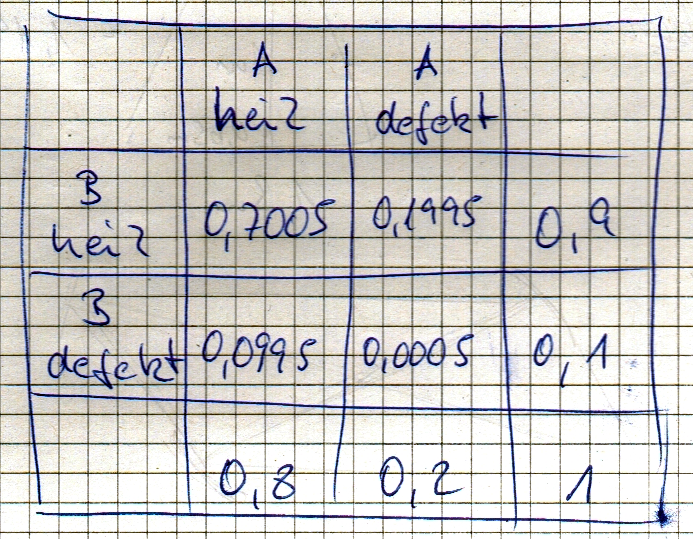 A A
heiz defekt
B
heiz 0,7005 0,1995 0,9
B
defekt 0,0995 0,0005 0,1
0,8 0,2 1